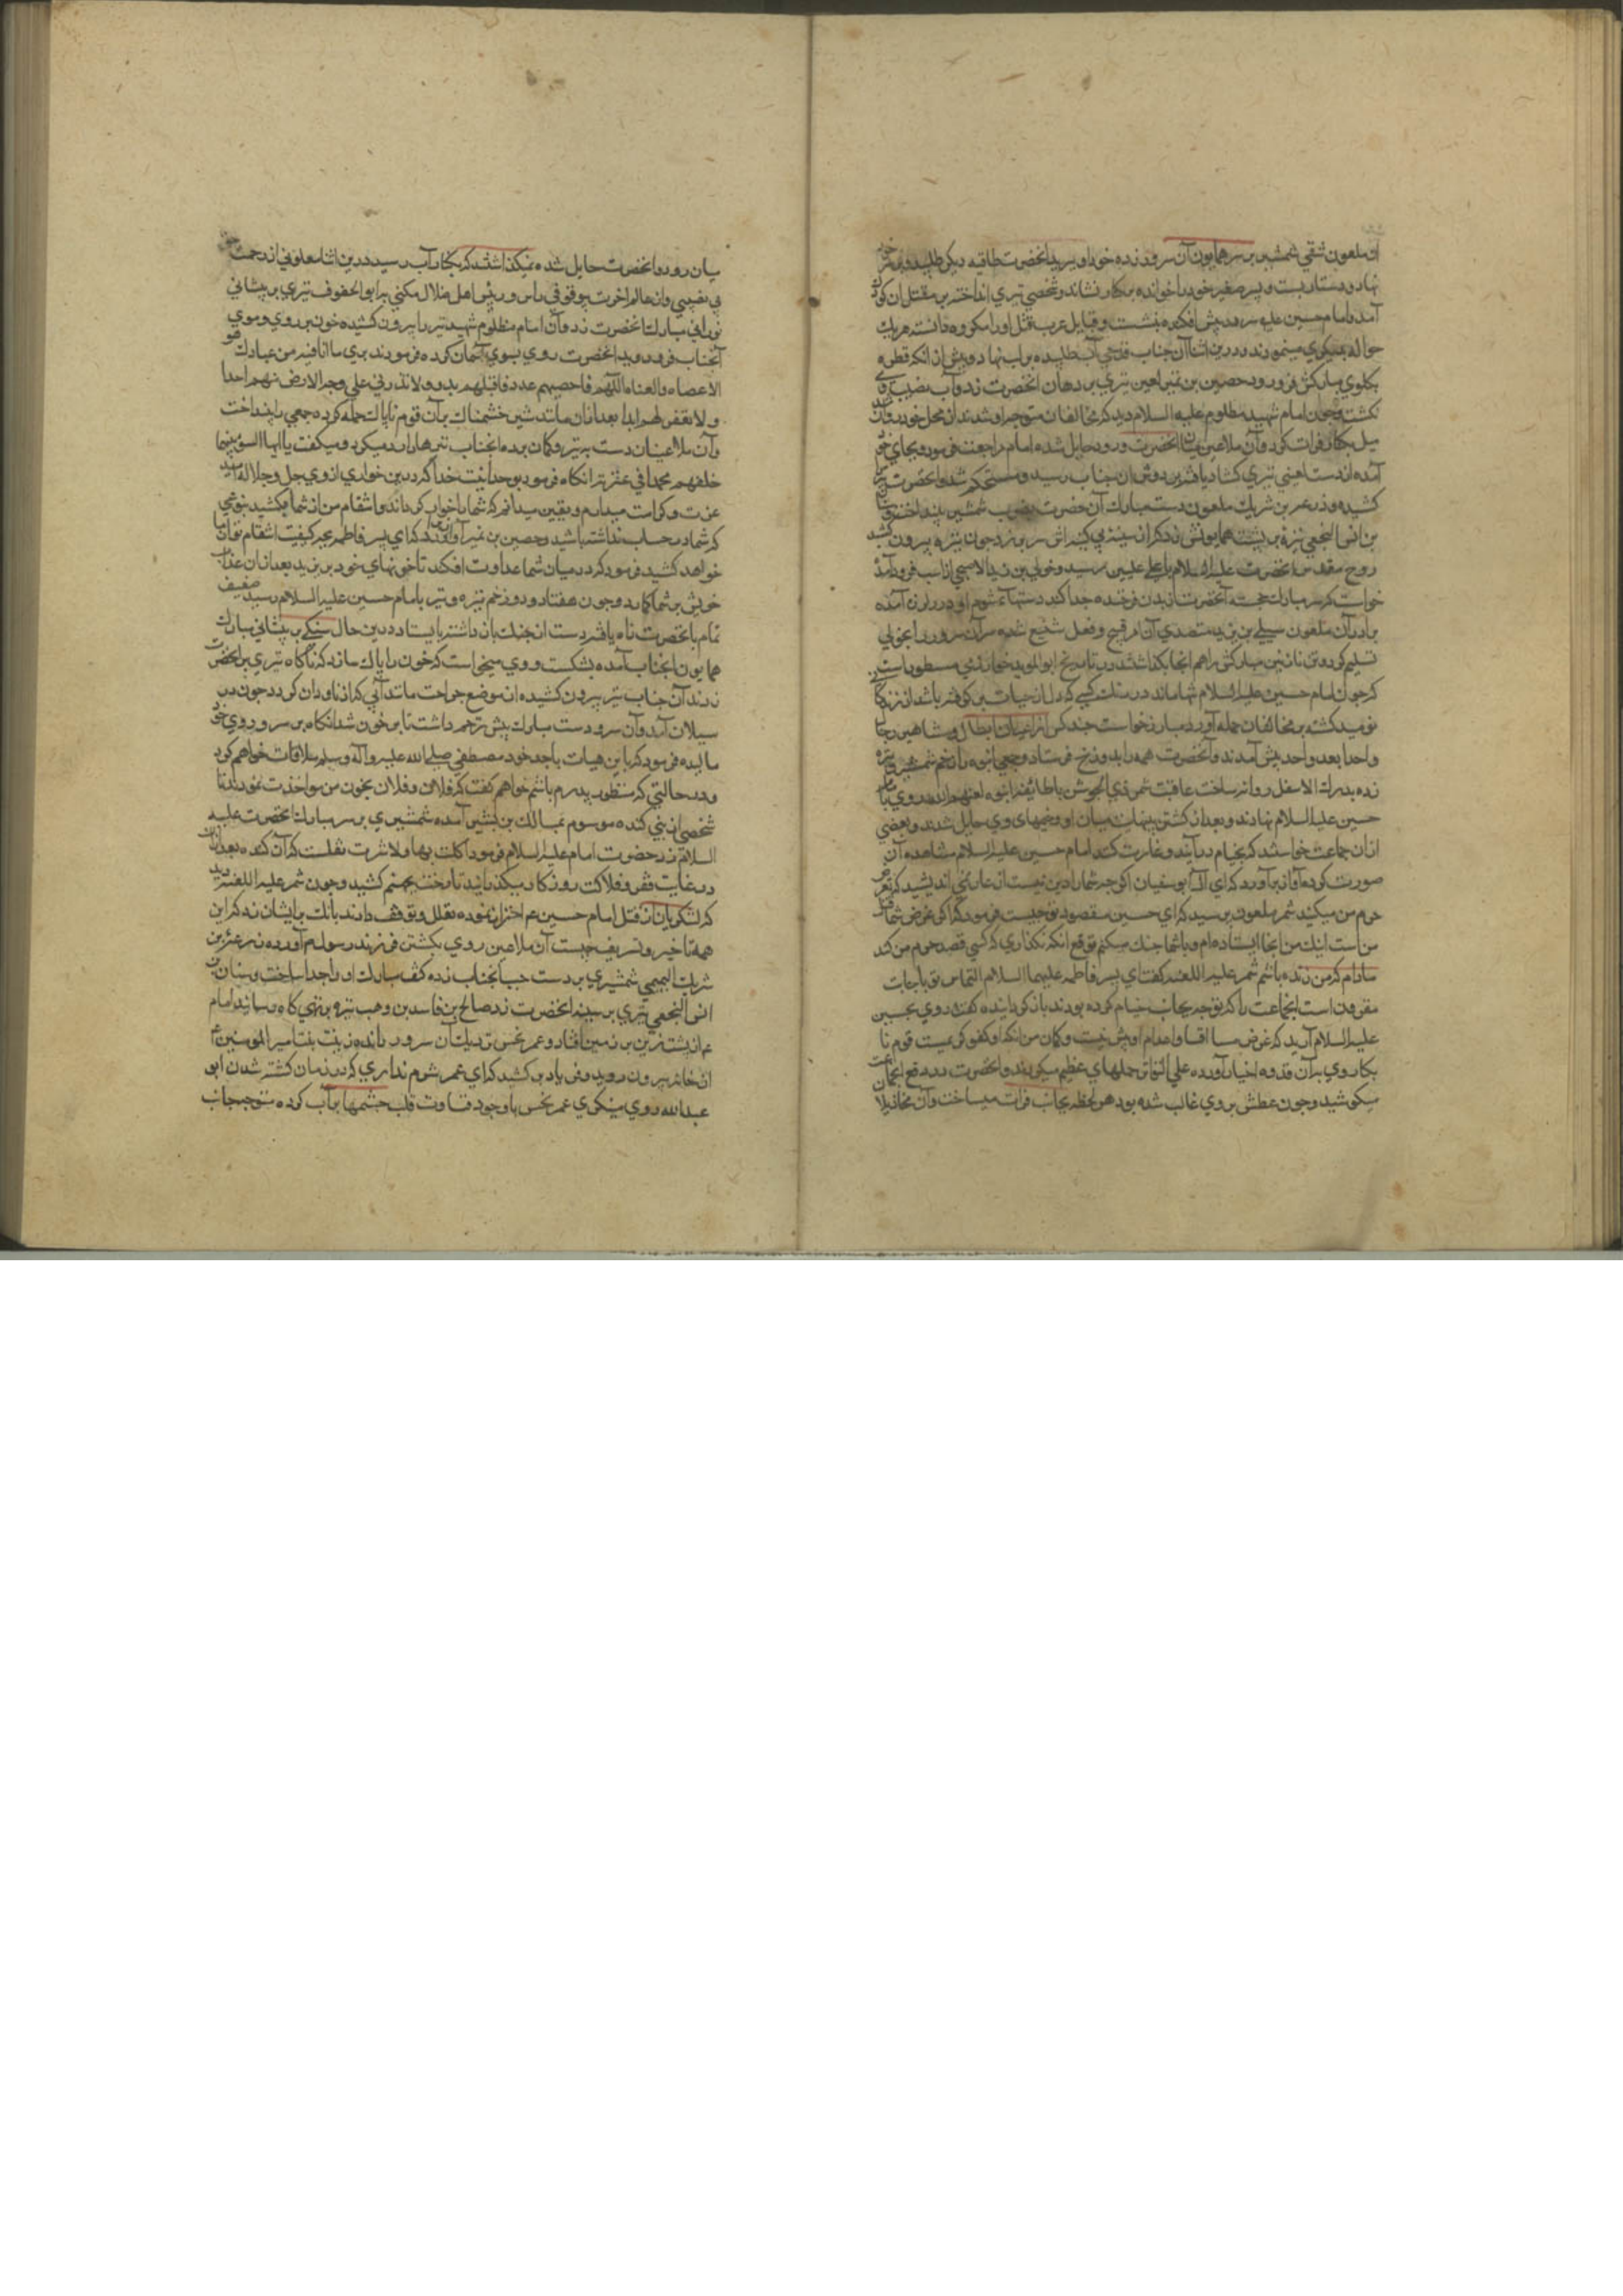 آن ملعون شقي شمشير بر سر همايون آن سرور زده خود او ببريد انحضرت طاقيه ديكر طلبيد و بر سر
نهاد و دستار ببست و پسر صغير خود را خوانده بر كنار نشاند و شخصي تيري انداخته بر مقتل ان كودك
آمد و امام حسين عليه سر در پيش افكنده بنشست و قبايل عرب قتل او را مكروه دانسته هر يك
حواله بديكري مينمودند و در اين اثنا آن جناب قدحي آب طلبيده بر لب نهاد و پيش از آنكه قطره
بكلوي مباركش فرو رود حصين بن نمير لعين تيري بر دهان انحضرت زد و آب نصيب وي
نكشت و چون امام شهيد مظلوم عليه السلام ديد كه مخالفان متوجه او شدند از محل خود روان شد
ميل بكنار فرات كرد و آن ملاعين ميان انحضرت و رود حايل شده امام مراجعت فرمود و بجاي خود
آمده از دست لعيني تيري كشاد يافته بر دوش ان جناب رسيد و مستحكم شد و انحضرت تير را
كشيده و زرعه بن شريك ملعون دست مبارك آن حضرت بضرب شمشير بينداخت و سنان
بن انس النجعي نيزه بر پشت همايونش زد كه از سينه بي كينه اش سر بر زد چون نيزه بيرون كشيد
روح مقدس انحضرت عليه السلام باعلي عليين رسيد و خولي بن يزيد الاصبحي از اسب فرود آمد
خواست كه سر مبارك خجسته آنحضرت از بدن فرخنده جدا كند دستهاء شوم او در لرزه آمده
برادر آن ملعون سبيلي بن يزيد متصدي آن امر قبيح و فعل شنيع شده سر آن سرور را بخولي
تسليم كرد و تن نازنين مباركش را هم انجا بكذاشتند در تاريخ ابو المويد خوارزمي مسطور است
كه چون امام حسين عليه السلام تنها ماند در مثلت كسي كه دل از حيات بر كرفته باشد از زندكاني
نوميد كشته بر مخالفان حمله آورد و مبارز خواست چند كس از اعيان ابطال و مشاهير رجال
واحدا بعد واحد پيش آمدند و آنحضرت همه را بدوزخ فرستاد و جمعي انبوه را زخم شمشير و نيزه
زده بدرك الاسفل روانه ساخت عاقبت شمر ذي الجوشن با طائفه انبوه لعنهم الله روي بامام
حسين عليه السلام نهادند و بعد از كشش بينهايت ميان او و خيمهاي وي حايل شدند و بعضي
ازان جماعت خواستند كه بخيام در آيند و غارت كنند امام حسين عليه السلام مشاهده آن
صورت كرده آواز برآورد كه اي آل ابو سفيان اكر چه شما را دين نيست از عار نمي انديشيد كه تعرض
حرم من ميكنيد شمر ملعون پرسيد كه اي حسين مقصود تو چيست فرمود كه اكر غرض شما قتل
من است اينك من اينجا ايستاده ام و با شما جنك ميكنم توقع انكه نكذاري كه كسي قصد حرم من كند
مادام كه من زنده باشم شمر عليه اللعنه كفت اي پسر فاطمه عليهما السلام التماس تو باجابت
مقرون است انجماعت را كه توجه بجانب خيام كرده بودند باز كردانيده كفت روي بحسين
عليه السلام آريد كه غرض ما اقسا و اعدام او بيش نيست و كمان من انكه او كفو كريمست قوم نا
بكار روي بر آن قدوه اخيار آورده علي التواتر حملهاي عظيم ميكردند و انحضرت در دفع انجماعت
ميكوشيد و چون عطش بر وي غالب شده بود هر لحظه بجانب فرات ميساخت و آن مخاذيل
ميان رود و انحضرت حايل شده نميكذاشتند كه بكنار آب رسيد درين اثنا ملعوني از رحمت حق
بي نصيبي و از عالم اخرت بوقوفي راس و رئيس اهل ضلال مكني بابو الحفوف تيري بر پيشاني
نوراني مبارك انحضرت زد و آن امام مظلوم شهيد تير را بيرون كشيده خون بر روي و موي
آنجناب فرو دويد انحضرت روي بسوي آسمان كرده فرمودند بري ما انا فيه من عبادك هو
الاعصاه و العناه اللهم فاحصهم عددا فاقتلهم بددا و لا تذرني علي وجه الارض منهم احدا
و لا تغفر لهم ابدا بعد ازان مانند شير خشمناك بر آن قوم ناپاك حمله كرده جمعي را بينداخت
و آن ملاعينان دست بتير و كمان برده انجناب تيرها را رد ميكرد و ميكفت يا ايها السو بئسما
خلفتهم محمدا في عترته انكاه فرمود بوحدانيت خدا كه درين خواري از وي جل و جلاله اميد
عزت و كرامت ميدارم و يقين ميدانم كه شما را خوار كرداند و انتقام من از شما بكشد بنوعي
كه شما در حساب نداشته باشيد و حصين بن نمير آواز داد كه اي پسر فاطمه بچه كيفيت انتقام تو از ما
خواهد كشيد فرمود كه در ميان شما عداوت افكند تا خونهاي خود بريزيد بعد ازان عذاب
خويش بر شما كمارد و چون هفتاد و دو زخم نيزه و تير بامام حسين عليه السلام رسيد ضعيف
تمام بانحضرت راه يافته دست از جنك باز داشته بايستاد درين حال سنكي بر پيشاني مبارك
همايون انجناب آمده بشكست و وي ميخواست كه خون را پاك سازد كه ناكاه تيري بر انحضرت
زدند آن جناب تير بيرون كشيده از موضع جراحت مانند آبي كه از ناودان كردد چون در
سيلان آمد و آن سرور دست مبارك پيش زخم داشت تا پر خون شد انكاه بر سر و روي خود
ماليده فرمود كه باين هيات با جد خود مصطفي صلي الله عليه و آله و سلم ملاقات خواهم كرد
و در حالتي كه منظور پدرم باشم خواهم كفت كه فلان و فلان بخون من مواخذت نمودند تا
شخصي از بني كنده موسوم بمالك بن بشير آمده شمشيري بر سر مبارك انحضرت عليه
السلام زد حضرت امام عليه السلام فرمود اكلت بها و لا شربت نقلست كه آن كنده بعد ازان
در غايت فقر و فلاكت روزكار ميكذرانيد تا رخت بجهنم كشيد و چون شمر عليه اللعنه ديد
كه لشكريان از قتل امام حسين ع احتراز نموده تعلل و توقف دارند بانك بر ايشان زد كه اين
همه تاخير و تسويف چيست آن ملاعين روي بكشتن فرزند رسول م آورده زرعه بن
شريك التميمي شمشيري بر دست چپ انجناب زده كف مبارك او را جدا ساخت و سنان بن
انس النجعي تيري بر سينه انحضرت زد صالح بن فاسد بن وهب نيزه بر تهي كاه رسانيد امام
ع از پشت زين بر زمين افتاد و عمر نحس نزديك آن سرور رانده زينب بنت امير المومنين ع
از خانه بيرون دويد و فرياد بر كشيد كه اي عمر شوم نداري كه در زمان كشته شدن ابو
عبد الله روي مينكري عمر نحس با وجود قساوت قلب چشمها پر آب كرده متوجه جانب